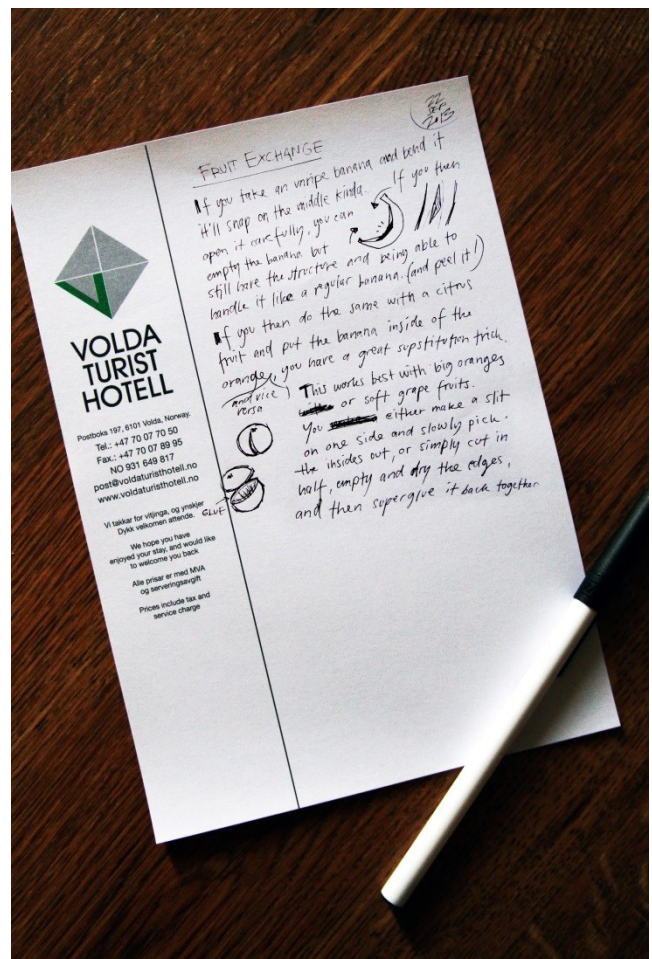 22
2013
FRUIT EXCHANGE
If you take an unripe banana and bend it
it'll snap on the middle kinda. If you then
open it carefully, you can
empty the banana but
still have the structure and being able to
handle it like a regular banana. (and peel it!)
If you then do the same with a citrus
fruit and put the banana inside of the
orange, you have a great supstitution trick.
and vice
versa
This works best with big oranges
or soft grape fruits.
You either make a slit
on one side and slowly pick
the insides out, or simply cut in
half, empty and dry the edges,
and then superglue it back together
GLUE
VOLDA
TURIST
HOTELL
Postboks 197, 6101 Volda, Norway.
Tel.: +47 70 07 70 50
Fax.: +47 70 07 89 95
NO 931 649 817
post@voldaturisthotell.no
www.voldaturisthotell.no
Vi takkar for vitjinga, og ynskjer
Dykk velkomen attende.
We hope you have
enjoyed your stay, and would like
to welcome you back
Alle prisar er med MVA
og serveringsavgift
Prices include tax and
service charge